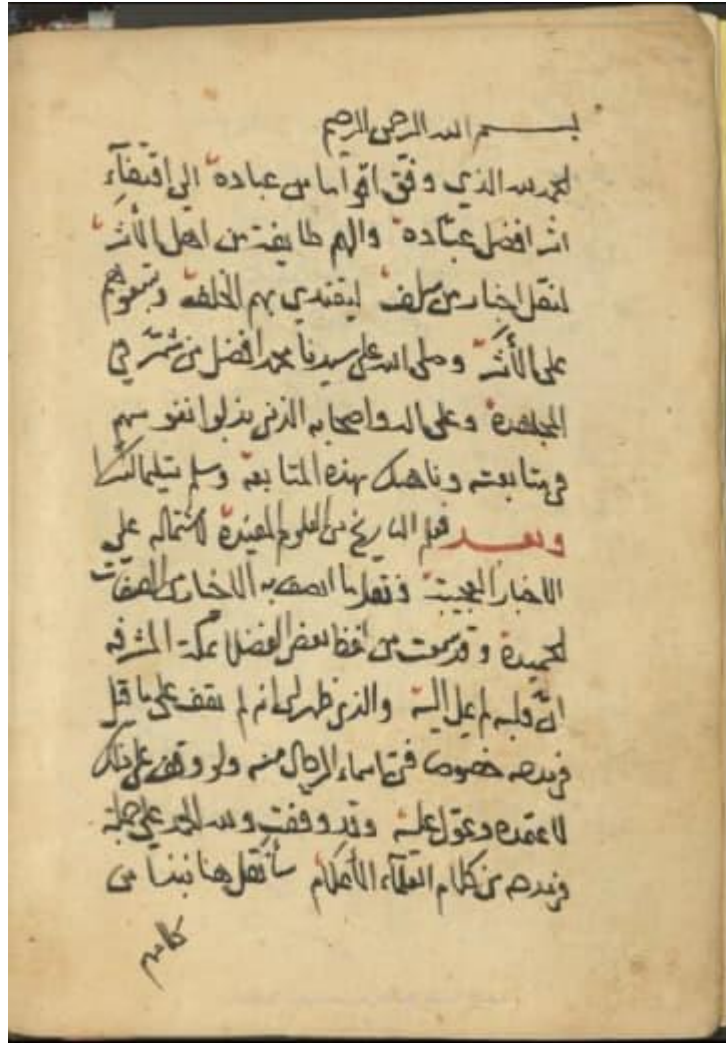 بسم الله الرحمن الرحيم
الحمد لله الذي وفق اقواما من عباده الي اقتفآء
اثر افضل عبّاده والهم طايفة من اهل الأثر
لنقل اخبار من سلف ليقتدي بهم الخلف ويتبعوهم
علي الأثر وصلي الله علي سيدنا محمد افضل من شمّر في
المجاهدة وعلي اله واصحابه الذين بذلوا نفوسهم
في متابعته وناهيك بهذه المتابعة وسلم تسليما
وبعد فعلم التاريخ من العلوم المفيدة لاشتماله علي
الاخبار العجيبة ونقل ما اتصف به الاخيار من الصفات
الحميدة وقد سمعت من لفظ بعض الفضلا بمكة المشرفة
انّ قلبه لم يمل اليه والذي ظهر لي انه لم يقف علي ما قيل
في مدحه خصوصا فن اسماء الرجال منه ولو وقف علي ذلك
لاعتمده وعوّل عليه وقد وقفت ولله الحمد علي جملة
في مدحه من كلام العلمآء الأعلام سأنقل هنا نبذا من
كلامهم